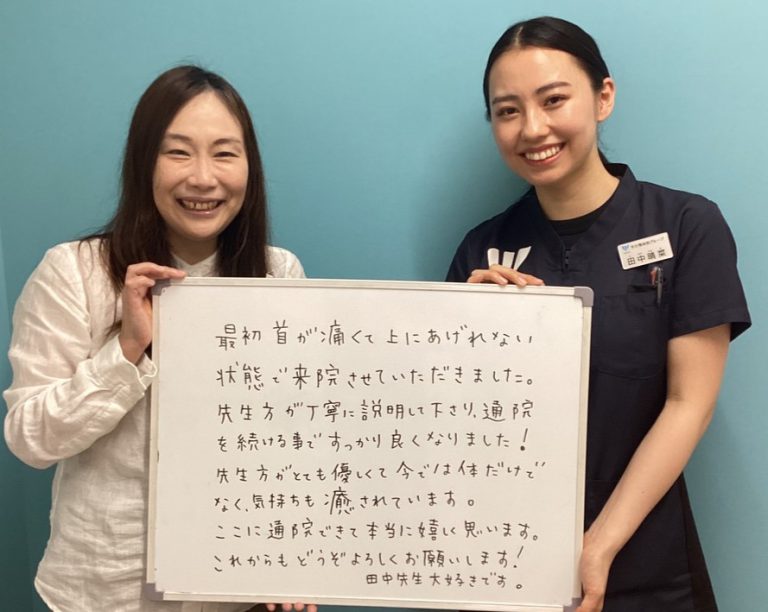 最初首が痛くて上にあげれない
状態で来院させていただきました。
先生方が丁寧に説明して下さり、通院
を続ける事ですっかり良くなりました！
先生方がとても優しくて今では体だけで
なく、気持ちも癒されています。
ここに通院できて本当に嬉しく思います。
これからもどうぞよろしくお願いします！
田中先生大好きです。
田中晴菜